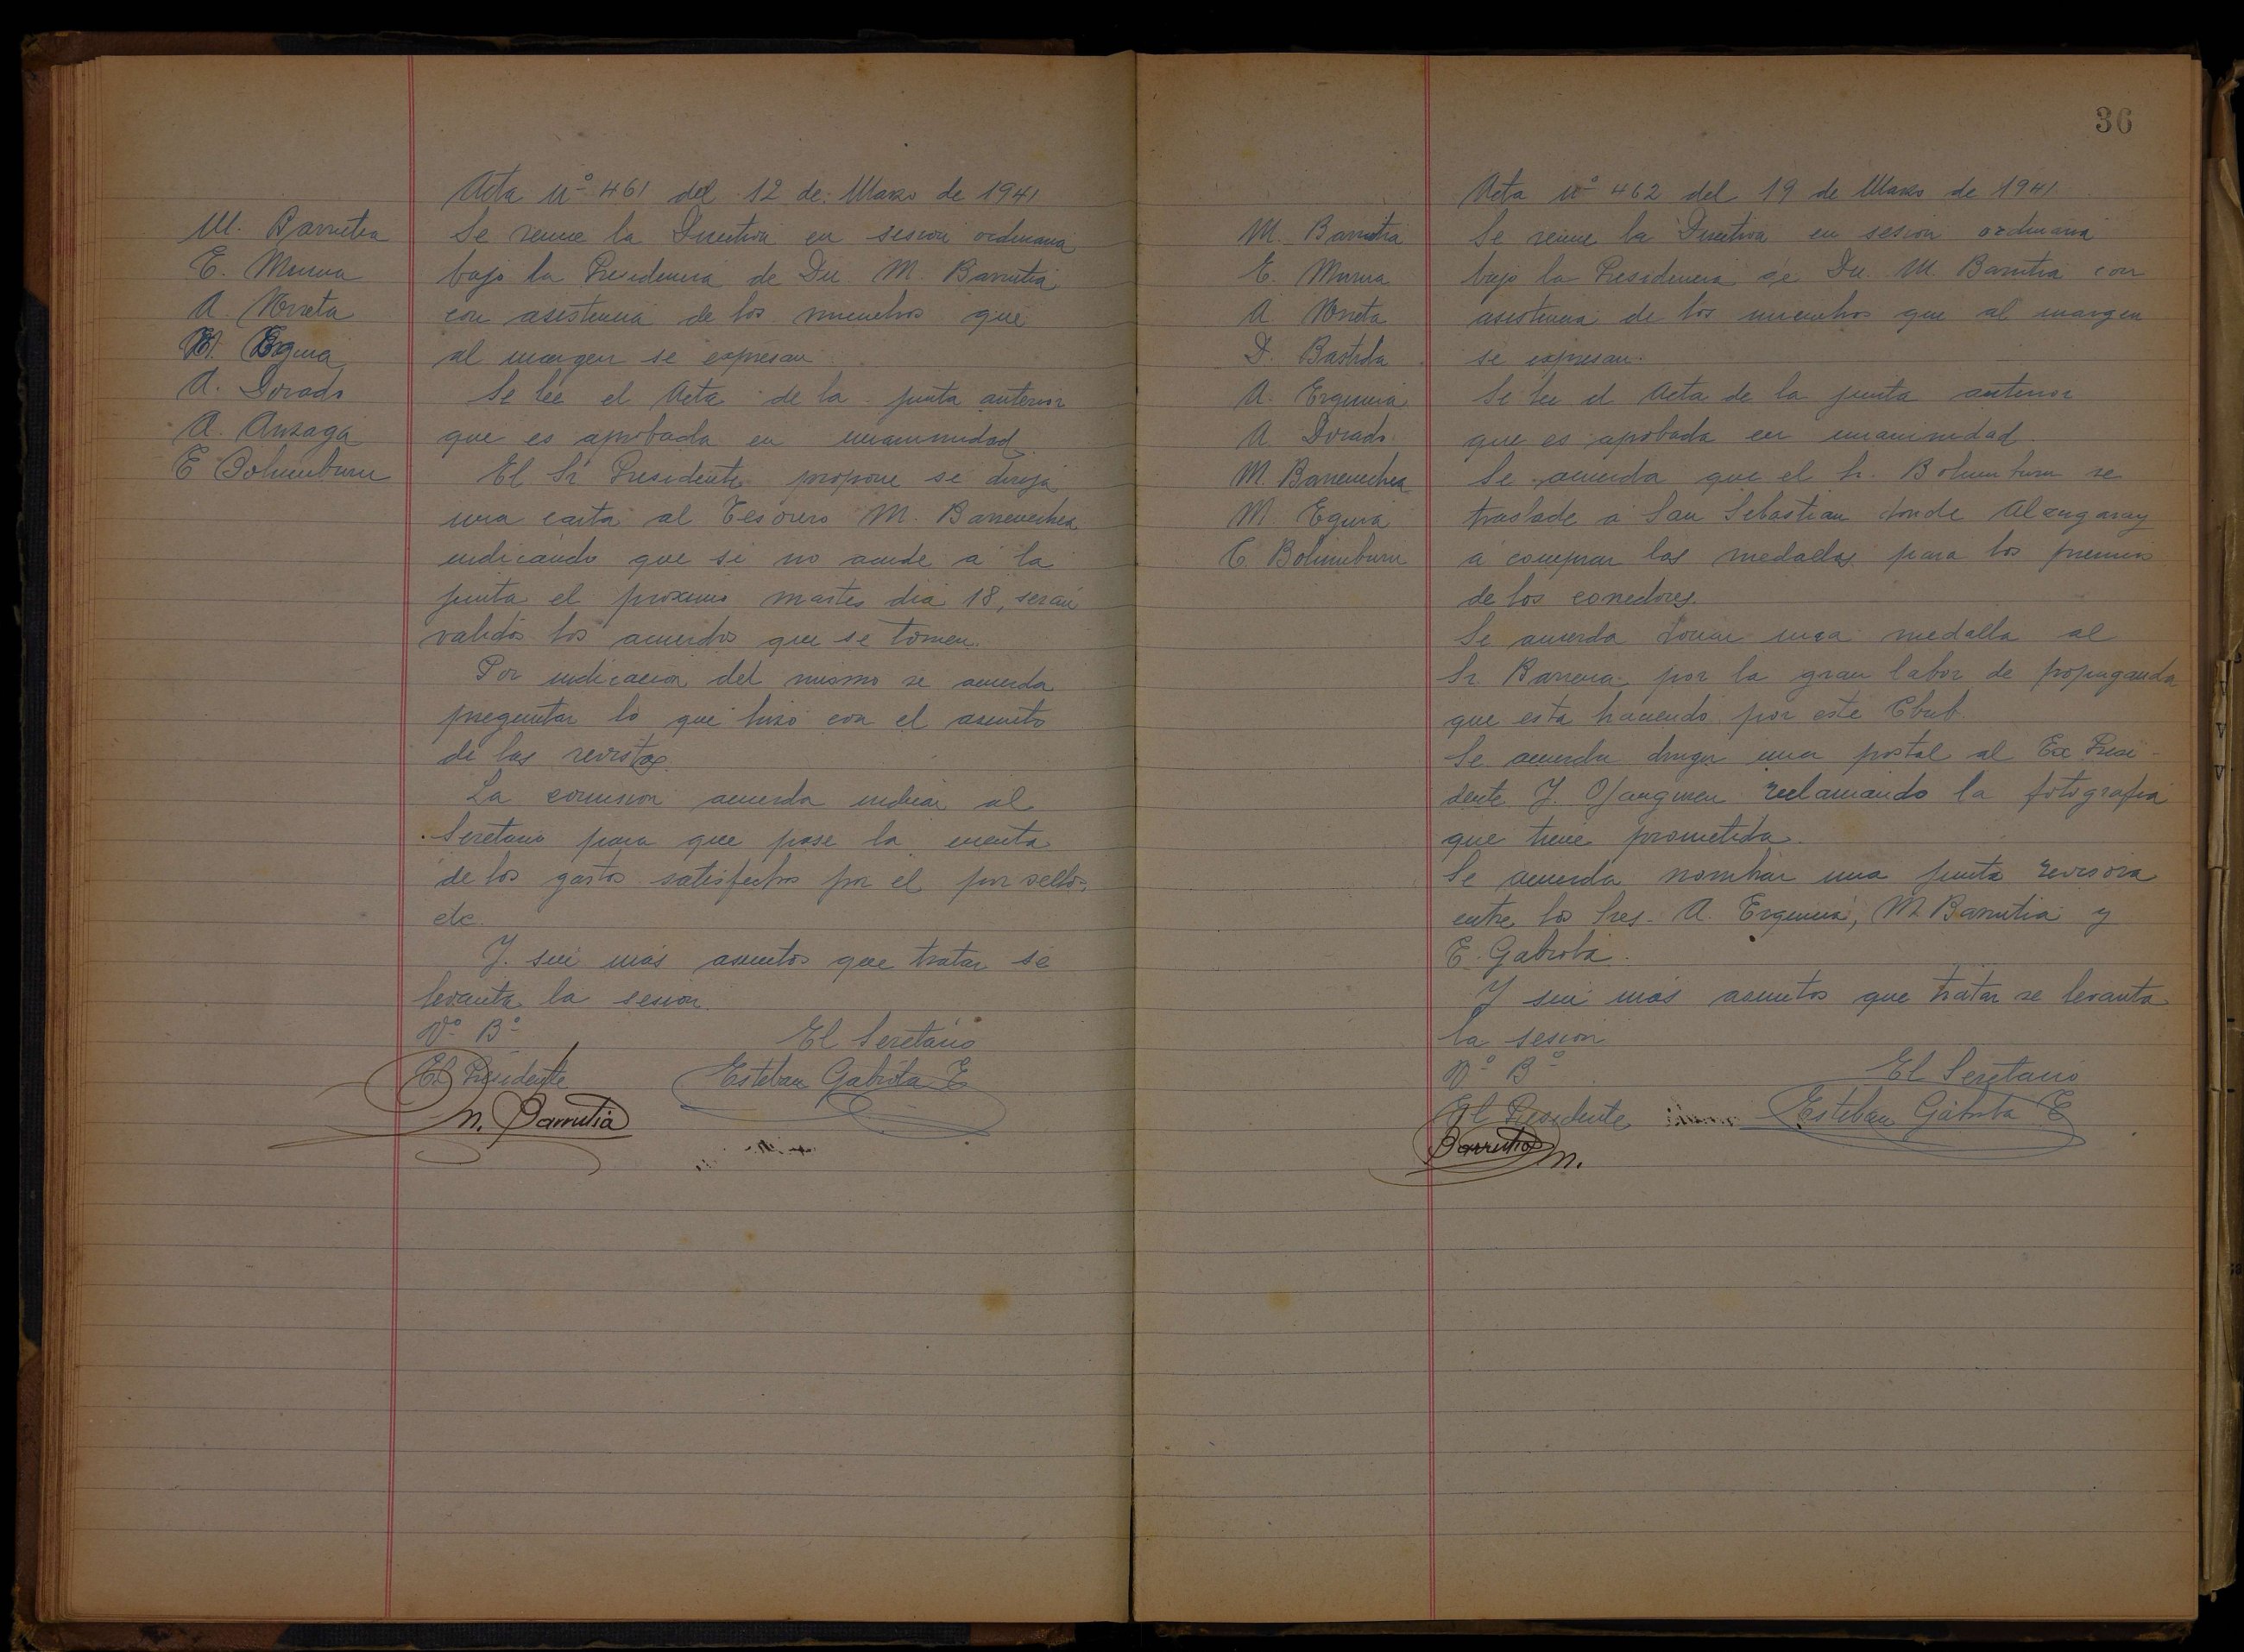 Acta nº 461 del 12 de Marzo de 1941
M. Barrutia
E. Murua
A. Urreta
M. Eguia
A. Dorado
A. Anzaga
E Bolumburu
Se reune la Directiva en sesion ordinaria
bajo la Presidencia de Dn. M. Barrutia
con asistencia de los miembros que
al margen se expresan
Se lee el Acta de la junta anterior
que es aprobada en unanimidad
El Sr Presidente propone se dirija
una carta al Tesorero M. Barrenechea
indicando que si no acude a la
junta el proximo martes dia 18, seran
validos los acuerdos que se tomen.
Por indicacion del mismo se acuerda
preguntar lo que hizo con el asunto
de las revistas.
La comision acuerda indicar al
Seretario para que pase la cuenta
de los gastos satisfechos por el por sellos,
etc.
Y sin más asuntos que tratar se
levanta la sesion.
Vº Bº
El Seretario
El Presidente
Esteban Gabiola E
M. Barrutia
36
Acta nº 462 del 19 de Marzo de 1941
M. Barrutia
E. Murua
A Urreta
D. Bastida
A. Erquicia
A Dorado
M. Barrenechea
M. Eguia
E. Bolumburu
Se reune la Directiva en sesion ordinaria
bajo la Presidencia de Dn. M. Barrutia con
asistencia de los miembros que al margen
se expresan.
Se lee el Acta de la junta anterior
que es aprobada en unanimidad
Se acuerda que el Sr. Bolumburu se
traslade a San Sebastian donde Alangaray
a comprar las medallas para los premios
de los corredores.
Se acuerda donar una medalla al
Sr Barrena por la gran labor de propaganda
que esta haciendo por este Club.
Se acuerda dirigir una postal al Ex Presi-
dente J. Ojanguren reclamando la fotografia
que tiene prometida.
Se acuerda nombrar una junta revisora
entre los Sres. A. Erquicia, M Barrutia y
E. Gabiola.
Y sin más asuntos que tratar se levanta
la sesion
Vº Bº
El Seretario
El Presidente
Esteban Gabiola E
Barrutia M.